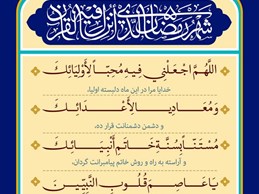 شهر رمضان الذی انزل فیه القرآن
اَللّهُمَّ اجْعَلْنی فیهِ مُحِبّاً لِاَوْلیآئِكَ
خدایا مرا در این ماه دلبسته اولیا،
وَمُعادِیاً لِاَعْدآئِكَ
و دشمن دشمنانت قرار ده،
مُسْتَنّاً بِسُنَّةِ خاتَمِ اَنْبِیآئِكَ
و آراسته به راه و روش خاتم پیامبرانت گردان،
یا عاصِمَ قُلُوبِ النَّبِیّینَ